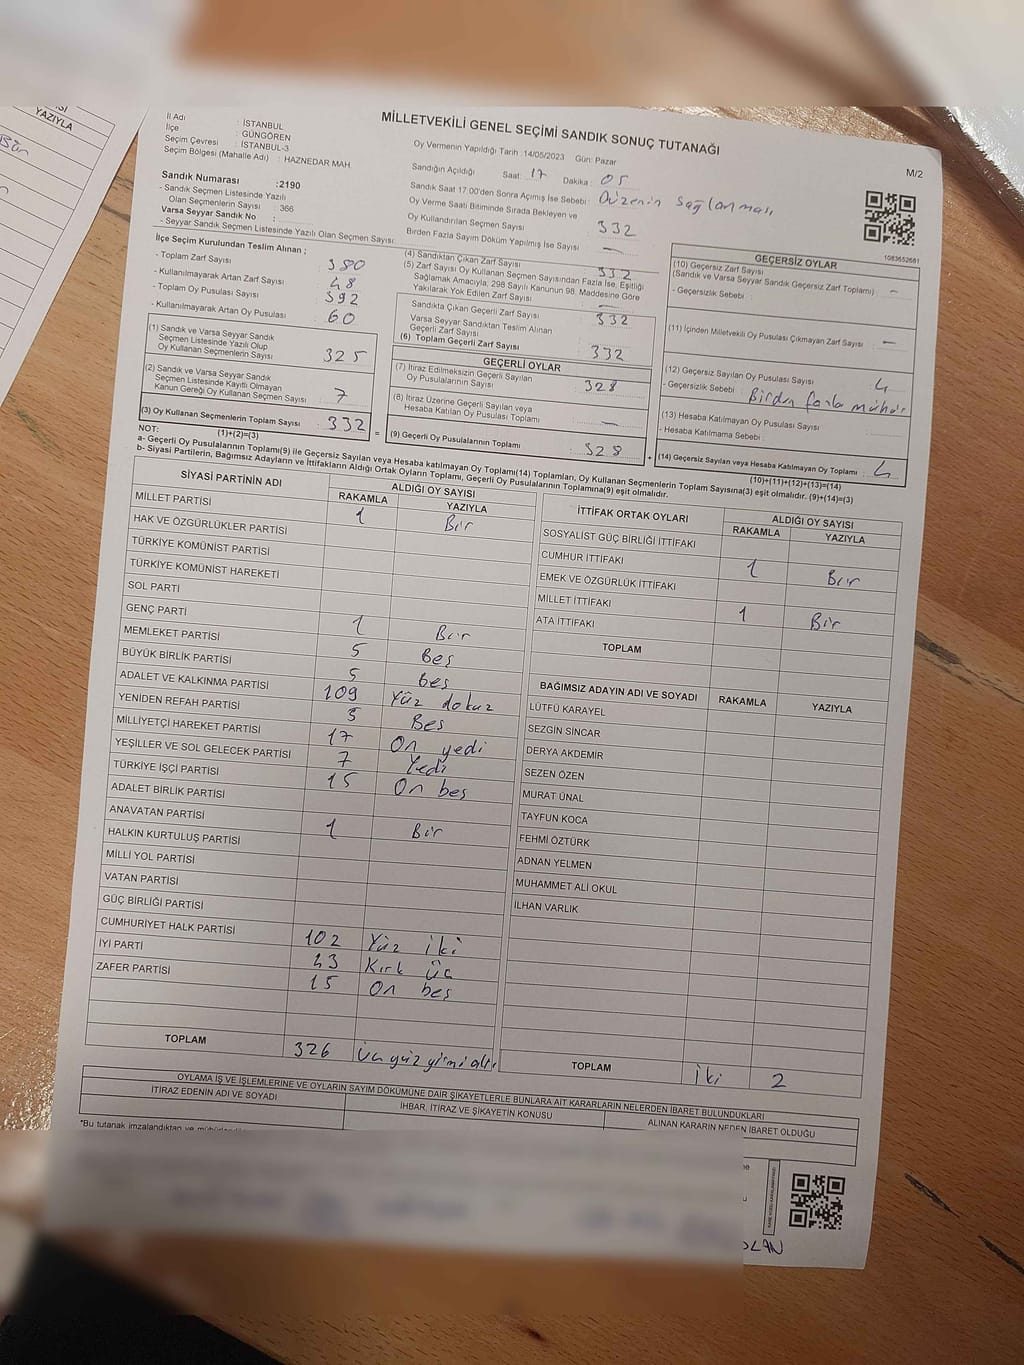 MİLLETVEKİLİ GENEL SEÇİMİ SANDIK SONUÇ TUTANAĞI
M/2
İl Adı : İSTANBUL
İlçe : GÜNGÖREN
Seçim Çevresi : İSTANBUL-3
Seçim Bölgesi (Mahalle Adı) : HAZNEDAR MAH
Sandık Numarası :2190
- Sandık Seçmen Listesinde Yazılı
Olan Seçmenlerin Sayısı : 366
Varsa Seyyar Sandık No :
- Seyyar Sandık Seçmen Listesinde Yazılı Olan Seçmen Sayısı:
Oy Vermenin Yapıldığı Tarih :14/05/2023 Gün: Pazar
Sandığın Açıldığı Saat: 17 Dakika: 05
Sandık Saat 17.00'den Sonra Açımış İse Sebebi: Düzenin sağlanması
Oy Verme Saati Bitiminde Sırada Bekleyen ve
Oy Kullandırılan Seçmen Sayısı 332
Birden Fazla Sayım Döküm Yapılmış İse Sayısı —
İlçe Seçim Kurulundan Teslim Alınan ;
- Toplam Zarf Sayısı 380
- Kullanılmayarak Artan Zarf Sayısı 48
- Toplam Oy Pusulası Sayısı 392
- Kullanılmayarak Artan Oy Pusulası 60
(1) Sandık ve Varsa Seyyar Sandık
Seçmen Listesinde Yazılı Olup
Oy Kullanan Seçmenlerin Sayısı 325
(2) Sandık ve Varsa Seyyar Sandık
Seçmen Listesinde Kayıtlı Olmayan
Kanun Gereği Oy Kullanan Seçmen Sayısı 7
(3) Oy Kullanan Seçmenlerin Toplam Sayısı 332
(1)+(2)=(3)
(4) Sandıktan Çıkan Zarf Sayısı 332
(5) Zarf Sayısı Oy Kullanan Seçmen Sayısından Fazla İse, Eşitliği
Sağlamak Amacıyla, 298 Sayılı Kanunun 98. Maddesine Göre
Yakılarak Yok Edilen Zarf Sayısı —
Sandıkta Çıkan Geçerli Zarf Sayısı 332
Varsa Seyyar Sandıktan Teslim Alınan
Geçerli Zarf Sayısı
(6) Toplam Geçerli Zarf Sayısı 332
GEÇERLİ OYLAR
(7) İtiraz Edilmeksizin Geçerli Sayılan
Oy Pusulalarının Sayısı 328
(8) İtiraz Üzerine Geçerli Sayılan veya
Hesaba Katılan Oy Pusulası Toplamı —
= (9) Geçerli Oy Pusulalarının Toplamı 328 +
GEÇERSİZ OYLAR
1083652661
(10) Geçersiz Zarf Sayısı
(Sandık ve Varsa Seyyar Sandık Geçersiz Zarf Toplamı) : -
- Geçersizlik Sebebi :
(11) İçinden Milletvekili Oy Pusulası Çıkmayan Zarf Sayısı : —
(12) Geçersiz Sayılan Oy Pusulası Sayısı : 4
- Geçersizlik Sebebi : Birden fazla mühür
(13) Hesaba Katılmayan Oy Pusulası Sayısı :
- Hesaba Katılmama Sebebi :
(14) Geçersiz Sayılan veya Hesaba Katılmayan Oy Toplamı : 4
(10)+(11)+(12)+(13)=(14)
NOT:
a- Geçerli Oy Pusulalarının Toplamı(9) ile Geçersiz Sayılan veya Hesaba katılmayan Oy Toplamı(14) Toplamları, Oy Kullanan Seçmenlerin Toplam Sayısına(3) eşit olmalıdır. (9)+(14)=(3)
b- Siyasi Partilerin, Bağımsız Adayların ve İttifakların Aldığı Ortak Oyların Toplamı, Geçerli Oy Pusulalarının Toplamına(9) eşit olmalıdır.
SİYASİ PARTİNİN ADI ALDIĞI OY SAYISI
RAKAMLA YAZIYLA
MİLLET PARTİSİ 1 Bir
HAK VE ÖZGÜRLÜKLER PARTİSİ
TÜRKİYE KOMÜNİST PARTİSİ
TÜRKİYE KOMÜNİST HAREKETİ
SOL PARTİ
GENÇ PARTİ 1 Bir
MEMLEKET PARTİSİ 5 Beş
BÜYÜK BİRLİK PARTİSİ 5 Beş
ADALET VE KALKINMA PARTİSİ 109 Yüz dokuz
YENİDEN REFAH PARTİSİ 5 Beş
MİLLİYETÇİ HAREKET PARTİSİ 17 On yedi
YEŞİLLER VE SOL GELECEK PARTİSİ 7 Yedi
TÜRKİYE İŞÇİ PARTİSİ 15 On beş
ADALET BİRLİK PARTİSİ
ANAVATAN PARTİSİ 1 Bir
HALKIN KURTULUŞ PARTİSİ
MİLLİ YOL PARTİSİ
VATAN PARTİSİ
GÜÇ BİRLİĞİ PARTİSİ
CUMHURİYET HALK PARTİSİ 102 Yüz iki
İYİ PARTİ 43 Kırk üç
ZAFER PARTİSİ 15 On beş
TOPLAM 326 üç yüz yirmi altı
İTTİFAK ORTAK OYLARI ALDIĞI OY SAYISI
RAKAMLA YAZIYLA
SOSYALİST GÜÇ BİRLİĞİ İTTİFAKI
CUMHUR İTTİFAKI 1 Bir
EMEK VE ÖZGÜRLÜK İTTİFAKI
MİLLET İTTİFAKI 1 Bir
ATA İTTİFAKI
TOPLAM
BAĞIMSIZ ADAYIN ADI VE SOYADI RAKAMLA YAZIYLA
LÜTFÜ KARAYEL
SEZGİN SİNCAR
DERYA AKDEMİR
SEZEN ÖZEN
MURAT ÜNAL
TAYFUN KOCA
FEHMİ ÖZTÜRK
ADNAN YELMEN
MUHAMMET ALİ OKUL
İLHAN VARLIK
TOPLAM iki 2
OYLAMA İŞ VE İŞLEMLERİNE VE OYLARIN SAYIM DÖKÜMÜNE DAİR ŞİKAYETLERLE BUNLARA AİT KARARLARIN NELERDEN İBARET BULUNDUKLARI
İTİRAZ EDENİN ADI VE SOYADI İHBAR, İTİRAZ VE ŞİKAYETİN KONUSU ALINAN KARARIN NEDEN İBARET OLDUĞU
"Bu tutanak imzalandıktan ve
YAZIYLA
Bir